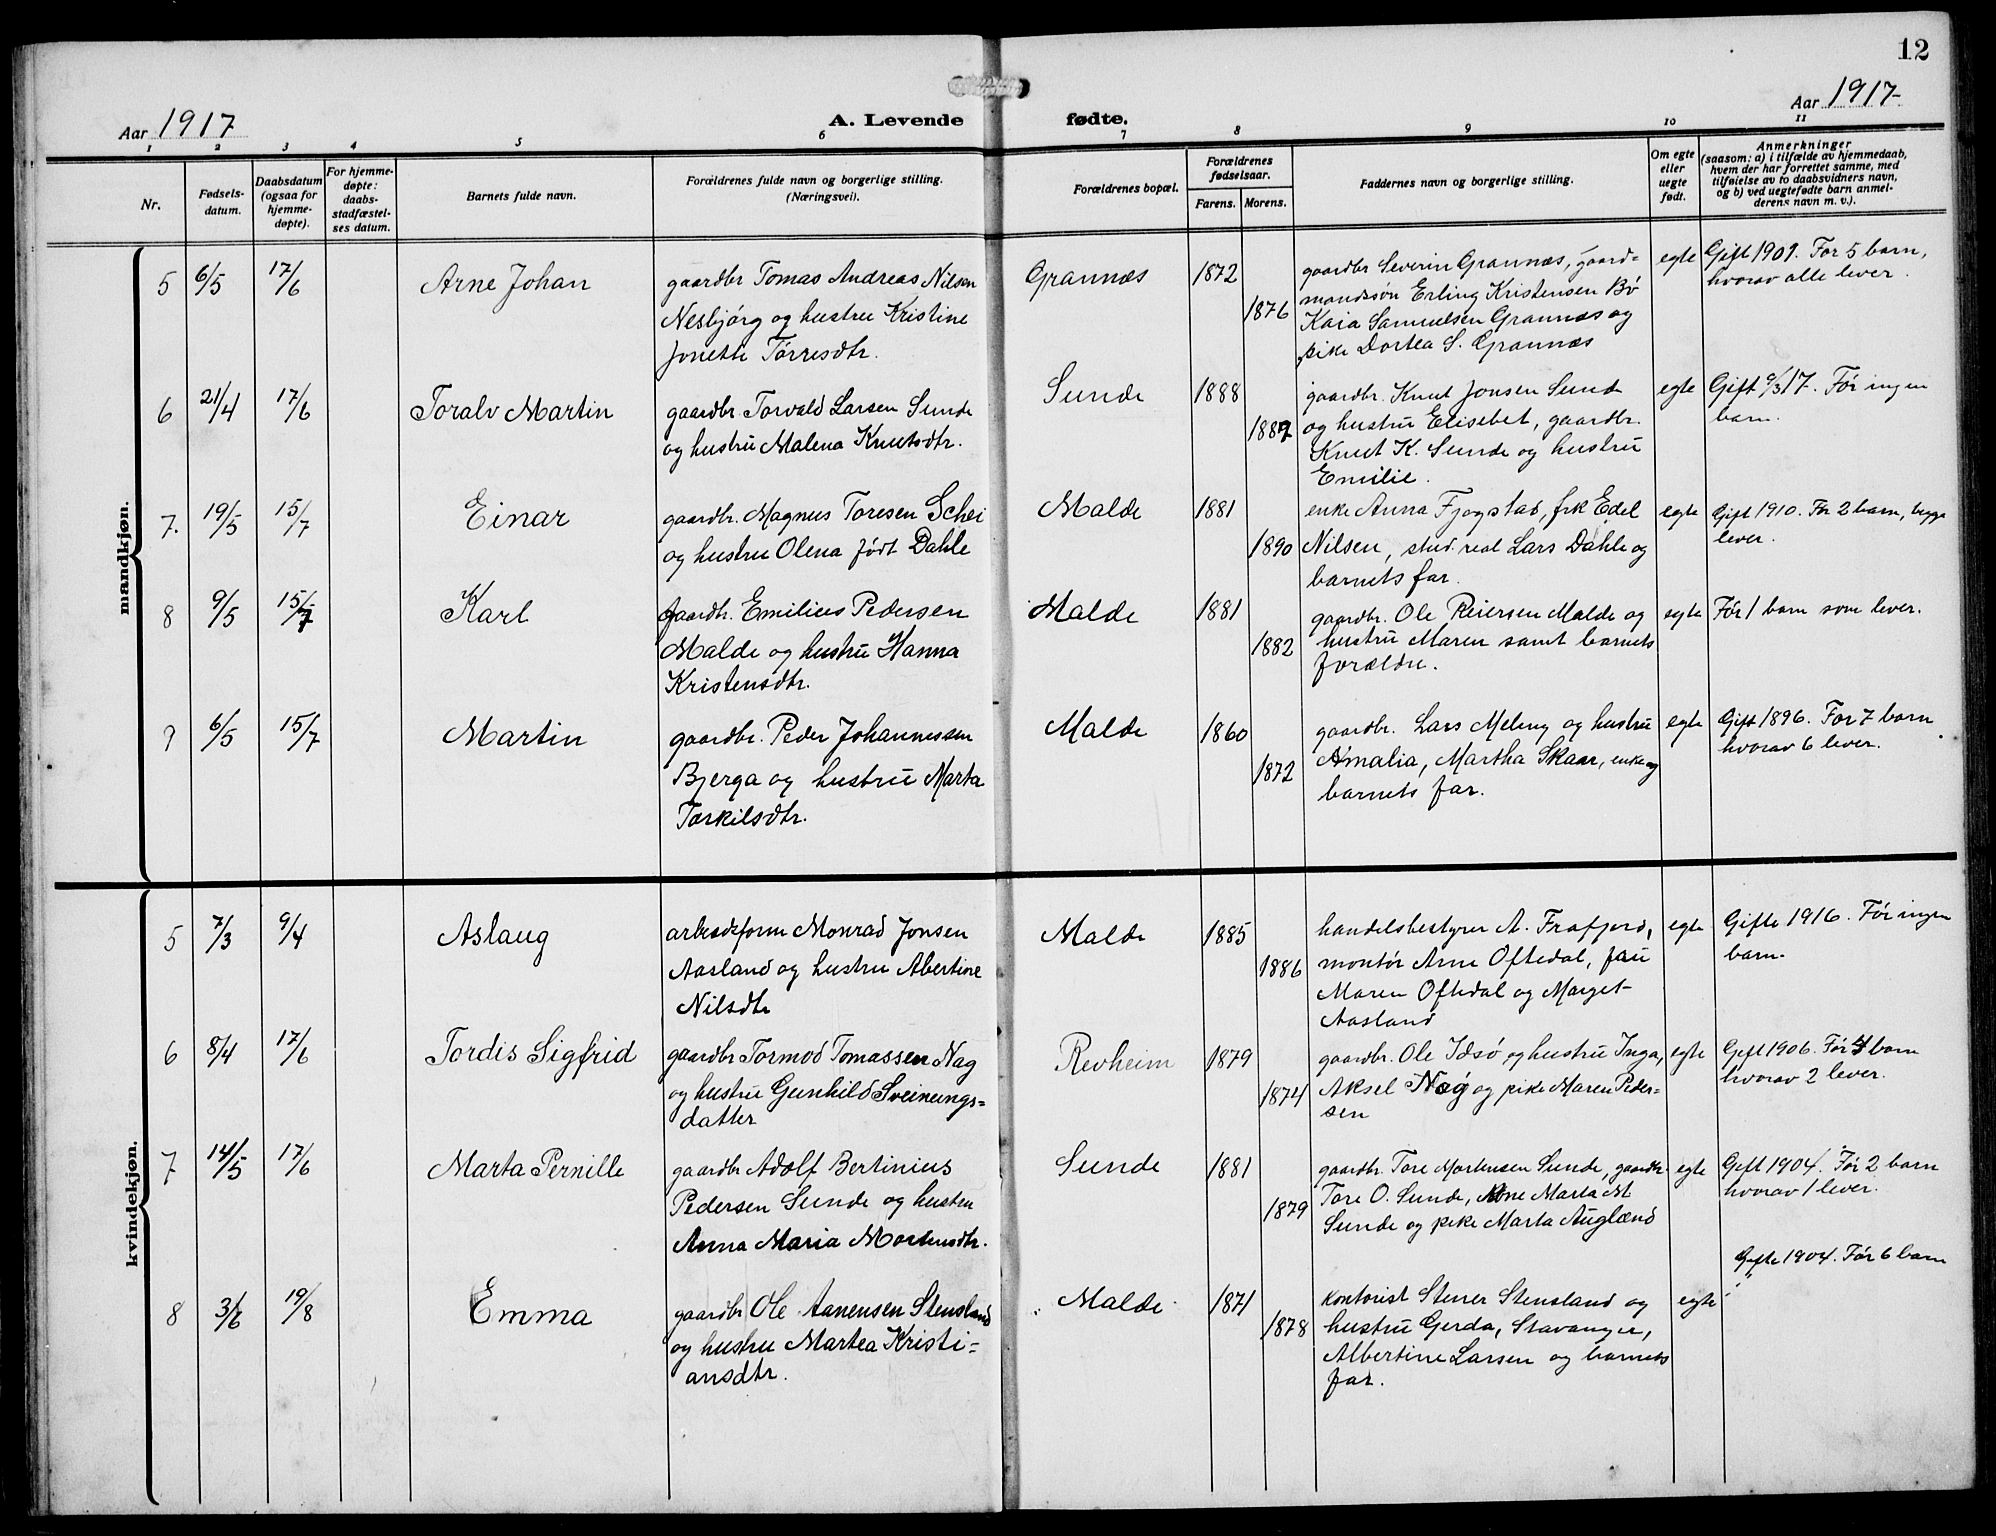 12
Aar 1917
A. Levende fødte.
Aar 1917.
1 2 3 4 5 6 7 8 9 10 11
Nr.
Fødsels-
datum.
Daabsdatum
(ogsaa for
hjemme-
døpte).
For hjemme-
døpte:
daabs-
stadfæstel-
ses datum.
Barnets fulde navn.
Forældrenes fulde navn og borgerlige stilling.
(Næringsvei).
Forældrenes bopæl.
Forældrenes
fødselsaar.
Farens. Morens.
Faddernes navn og borgerlige stilling.
Om egte
eller
uegte
født.
Anmerkninger
(saasom: a) i tilfælde av hjemmedaab,
hvem der har forrettet samme, med
tilføielse av to daabsvidners navn,
og b) ved uegtefødte barn anmel-
derens navn m. v.).
mandkjøn.
5 6/5 17/6 Arne Johan
gaardbr Tomas Andreas Nilsen
Nesbjørg og hustru Kristine
Jonette Tørresdtr.
Grannæs 1872 1876
gaardbr Severin Grannæs, gaard-
mandssøn Erling Kristensen Bø
Kaia Samuelsen Grannæs og
pike Dortea S. Grannæs
egte
Gift 1909. Før 5 barn,
hvorav alle lever.
6 21/4 17/6 Toralv Martin
gaardbr. Torvald Larsen Sunde
og hustru Malena Knutsdtr.
Sunde 1888 1887
gaardbr. Knut Jonsen Sunde
og hustru Elisebet, gaardbr.
Knut K. Sunde og hustru
Emilie.
egte
Gift /3 17. Før ingen
barn.
7. 19/5 15/7 Einar
gaardbr. Magnus Toresen Schei
og hustru Olena født Dahle
Malde 1881 1890
enke Anna Fjogstad, frk Edel
Nilsen, stud. real Lars Dahle og
barnets far.
egte
Gift 1910. Før 2 barn, begge
lever.
8 9/5 15/7 Karl
gaardbr. Emilius Pedersen
Malde og hustru Hanna
Kristensdtr.
Malde 1881 1882
gaardbr. Ole Reiersen Malde og
hustru Maren samt barnets
forældre.
egte
Før 1 barn som lever.
9 6/5 15/7 Martin
gaardbr. Peder Johannessen
Bjerga og hustru Marta
Torkilsdtr.
Malde 1860 1872
gaardbr. Lars Meling og hustru
Amalia, Martha Skaar, enke og
barnets far.
egte
Gift 1896. Før 7 barn
hvorav 6 lever.
kvindekjøn.
5 7/3 9/4 Aslaug
arbeidsform Monrad Jonsen
Aasland og hustru Abertine
Nilsdtr
Malde 1885 1886
handelsbestyrer A. Frafjord,
montør Arne Oftedal, fru
Maren Oftedal og Marget
Aasland
egte
Gifte 1916. Før ingen
barn.
6 8/4 17/6 Tordis Sigfrid
gaardbr Tormod Tomassen Nag
og hustru Gunhild Sveinungs=
datter
Revheim 1879 1874
gaardbr. Ole Idsø og hustru Inga,
Aksel Nag og pike Maren Peder-
sen
egte
Gift 1906. Før 4 barn
hvorav 2 lever.
7 14/5 17/6 Marta Pernille
gaardbr Adolf Bertinius
Pedersen Sunde og hustru
Anna Maria Mortensdtr.
Sunde 1881 1879
gaardbr. Tore Mortensen Sunde, gaardbr.
Tore O. Sunde, Ane Marta M
Sunde og pike Marta Auglænd
egte
Gift 1904. Før 2 barn
hvorav 1 lever.
8 3/6 19/8 Emma
gaardbr Ole Aanensen Stensland
og hustru Martea Kristi=
ansdtr.
Malde 1871 1878
kontorist Stener Stensland og
hustru Gerda, Stavanger,
Albertine Larsen og barnets
far.
egte
Gifte 1904. Før 6 barn